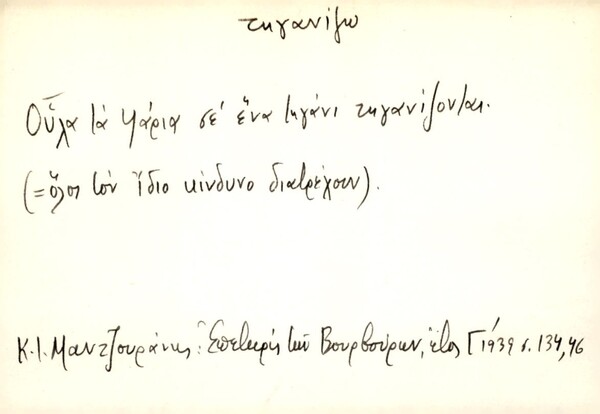 τηγανίζω
Οὖλα τὰ ψάρια σέ ἕνα τηγάνι τηγανίζονται.
(= ὅλοι τὸν ἴδιο κίνδυνο διατρέχουν).
Κ.Ι. Μαντζουράνης: Ἐπετηρὶς τῶν Βουρβούρων, ἔτος Γ΄ 1939 σ. 134, 46